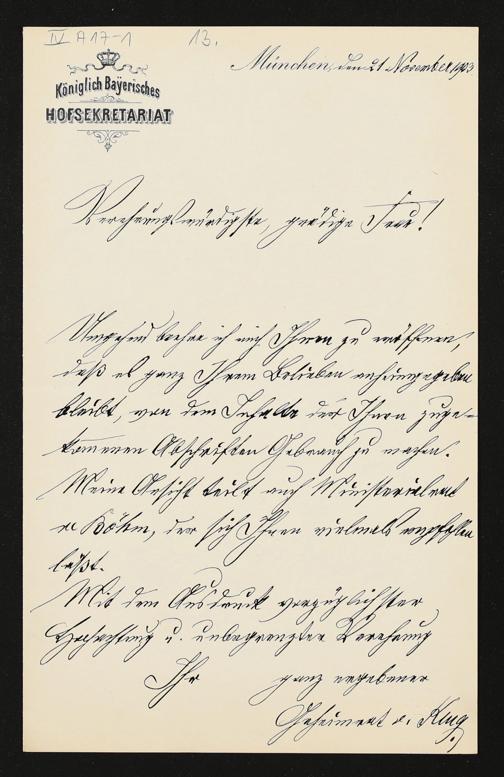 IV A 17-1 13.
Königlich Bayerisches
HOFSEKRETARIAT
München, den 21 November 1903
Verehrungswürdigste, gnädige Frau!
Umgehend beehre ich mich Ihnen zu eröffnen,
daß es ganz Ihrem Belieben anheimgegeben
bleibt, von dem Inhalte der Ihnen zuge-
kommenen Abschriften Gebrauch zu machen.
Meine Ansicht teilt auch Ministerialrat
v. Böhm, der sich Ihnen vielmals empfehlen
läßt.
Mit dem Ausdruck vorzüglichster
Hochachtung u. unbegrenzter Verehrung
Ihr ganz ergebener
Geheimrat v. Klug